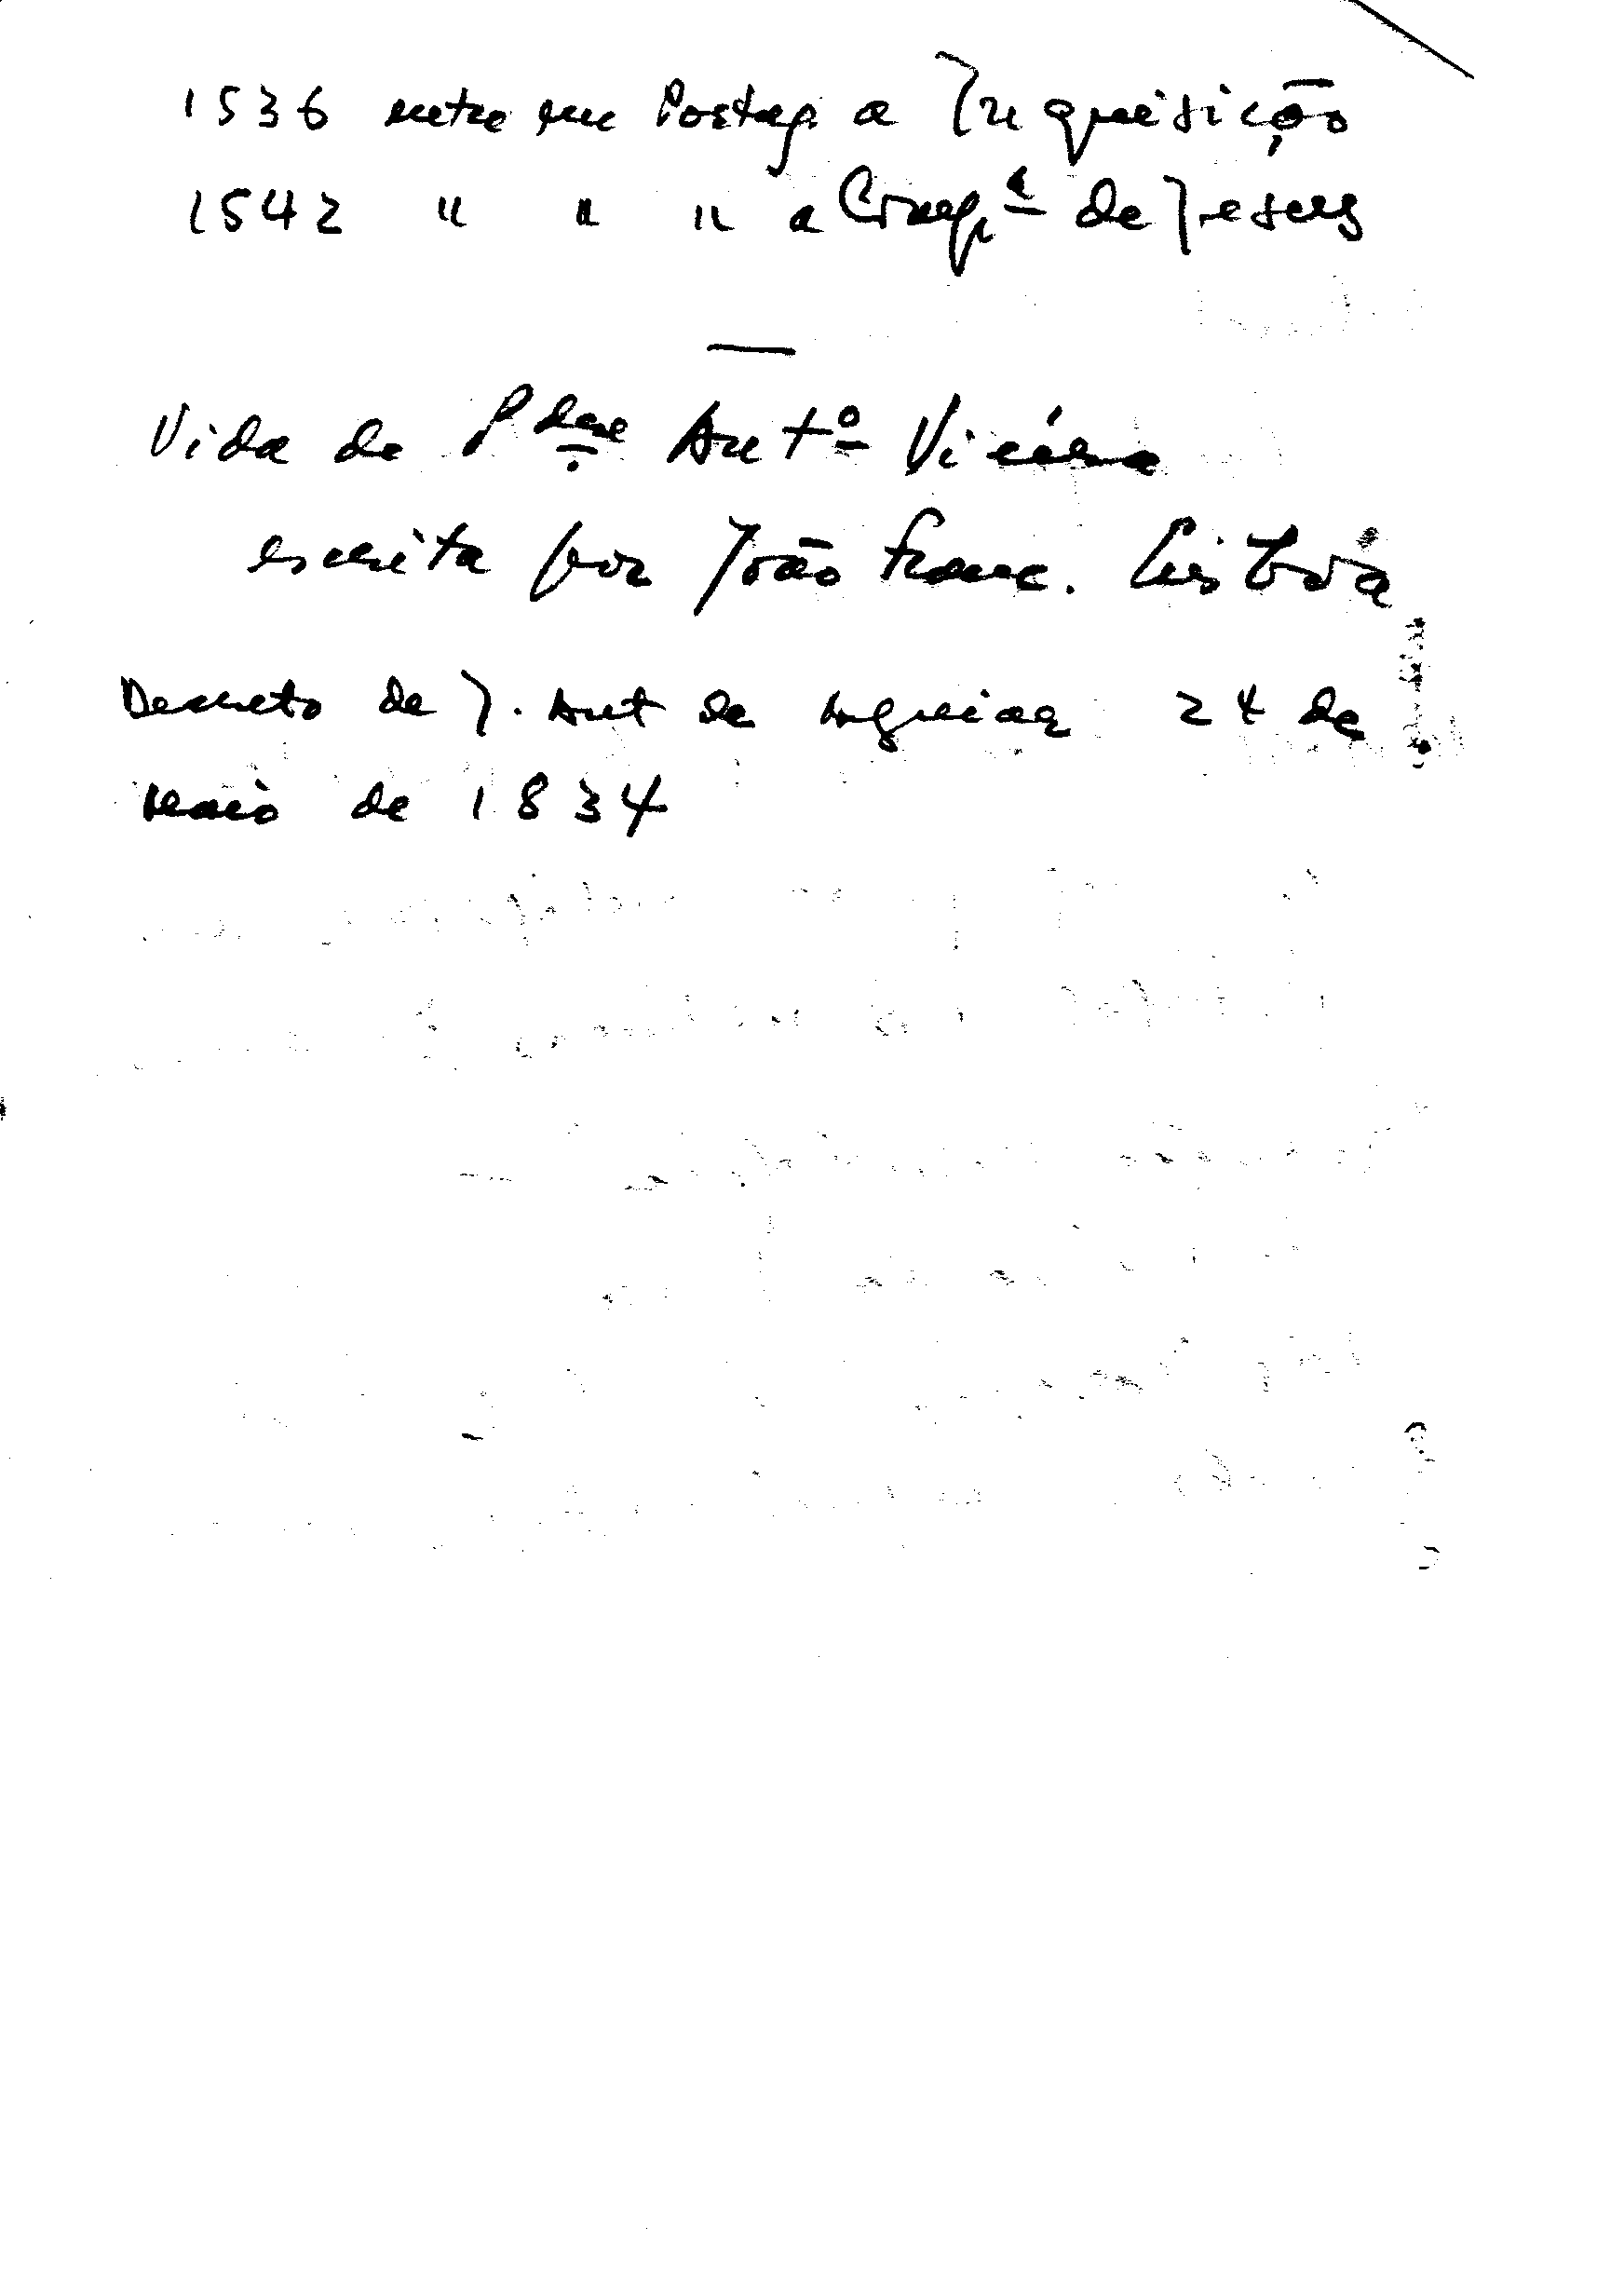 1536 entra em Portug. a Inquisição
1542 " " " a Comp.ª de Jesus
Vida do Pdre Antº Vieira
escrita por João Franc. Lisboa
Decreto de J. Ant de Aguiar 24 de
Maio de 1834